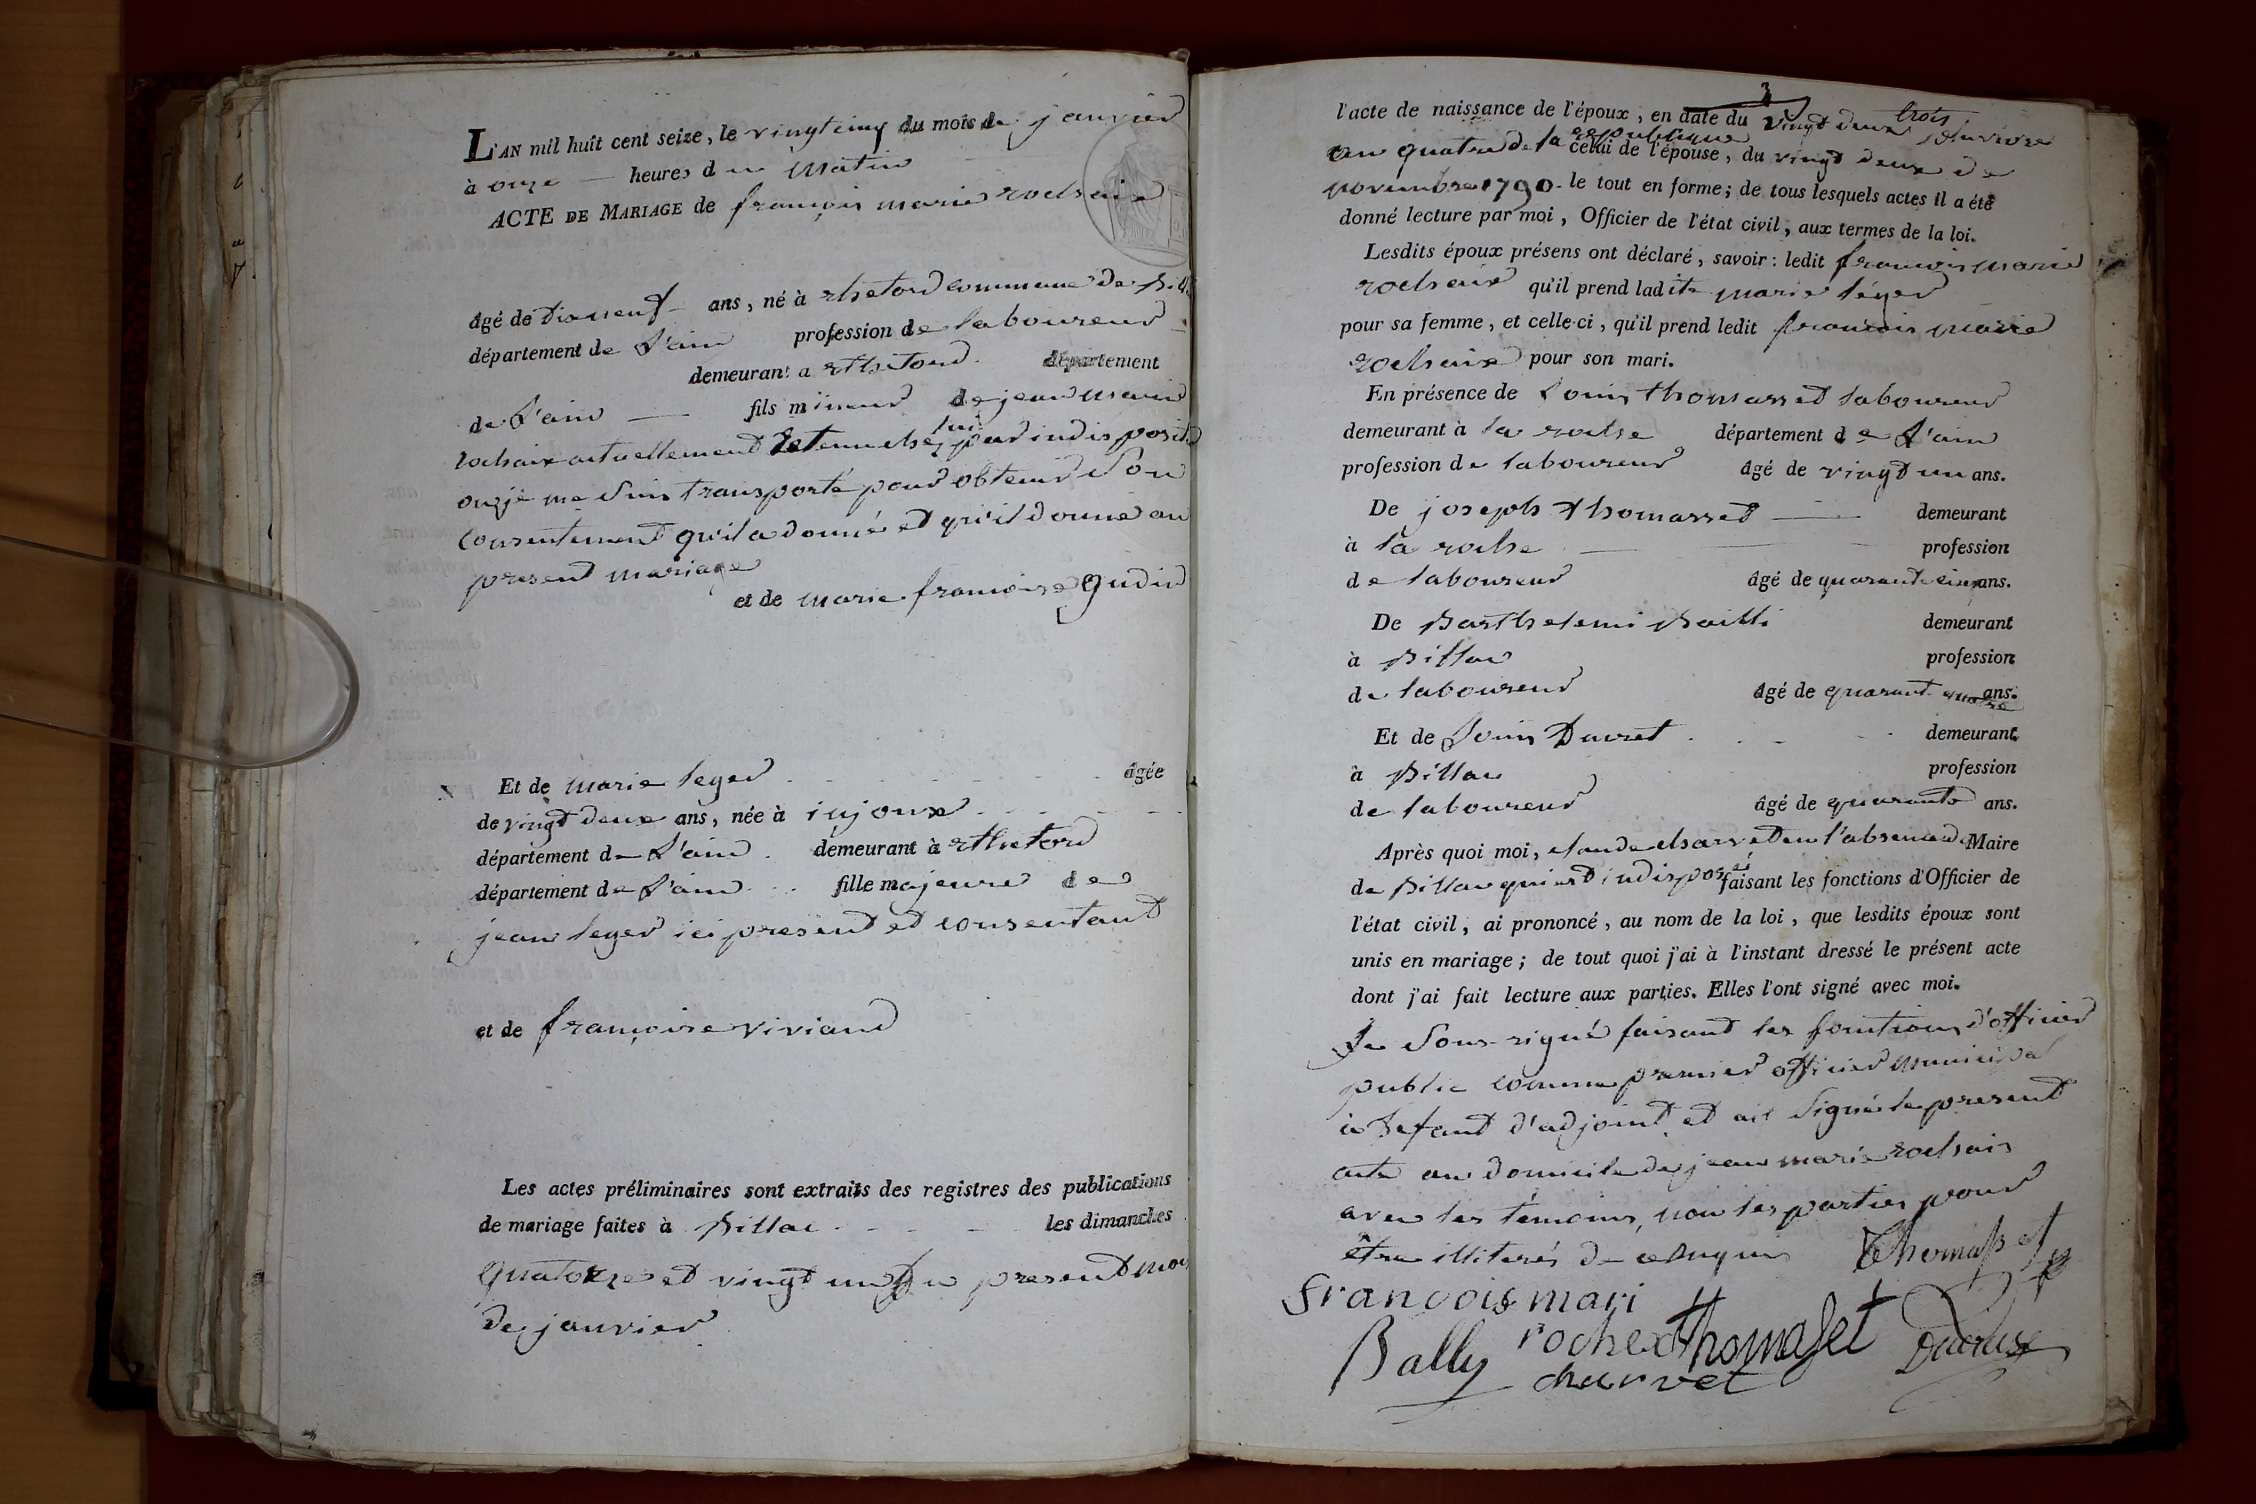 L'AN mil huit cent seize, le vingt cinq du mois de janvier
à onze — heures du matin
ACTE DE MARIAGE de françois marie rochaix
âgé de dix neuf ans, né à rhetord commune de
département de L'ain profession de laboureur
demeurant a rthetord département
de L'ain fils mineur de jean marie
rochaix actuellement detenu chez lui par indisposit
ou je me suis transporté pour obtenir son
consentement qu'il a donné et qu'il donne au
present mariage
et de marie françoise Gudin
Et de marie leger âgée
de vingt deux ans, née à injoux
département de L'ain demeurant à rthetord
département de L'ain fille majeure de
jean leger ici présent et consentant
et de françoise viviand
Les actes préliminaires sont extraits des registres des publications
de mariage faites à Billac les dimanches
quatorze et vingt un du present mois
de janvier
l'acte de naissance de l'époux, en date du vingt deux trois
an quatre de la republique celui de l'épouse, du vingt deux de
novembre 1790 - le tout en forme; de tous lesquels actes il a été
donné lecture par moi, Officier de l'état civil, aux termes de la loi.
Lesdits époux présens ont déclaré, savoir: ledit francois marie
rochaix qu'il prend ladite marie léger
pour sa femme, et celle-ci, qu'il prend ledit francois marie
rochaix pour son mari.
En présence de Louis thomasset laboureur
demeurant à la roche département de L'ain
profession de laboureur âgé de vingt un ans.
De joseph thomasset demeurant
à la roche profession
de laboureur âgé de quarante cinq ans.
De Barthelemi Bailli demeurant
à Billac profession
de laboureur âgé de quarante quatre ans.
Et de Louis Ducret demeurant
à Billac profession
de laboureur âgé de quarante ans.
Après quoi moi, claude charvet en l'absence du Maire
de Billac qui est indisposé faisant les fonctions d'Officier de
l'état civil, ai prononcé, au nom de la loi, que lesdits époux sont
unis en mariage; de tout quoi j'ai à l'instant dressé le présent acte
dont j'ai fait lecture aux parties. Elles l'ont signé avec moi.
Je Sous-signé faisant les fonctions d'officier
public comme premier officier municipal
à defaut d'adjoint et ai signé le present
acte au domicile de jean marie rochaix
avec les témoins, non les parties pour
être illiterés de ce enquis Thomasset
francois mari
rochex thomaset
Bally charvet